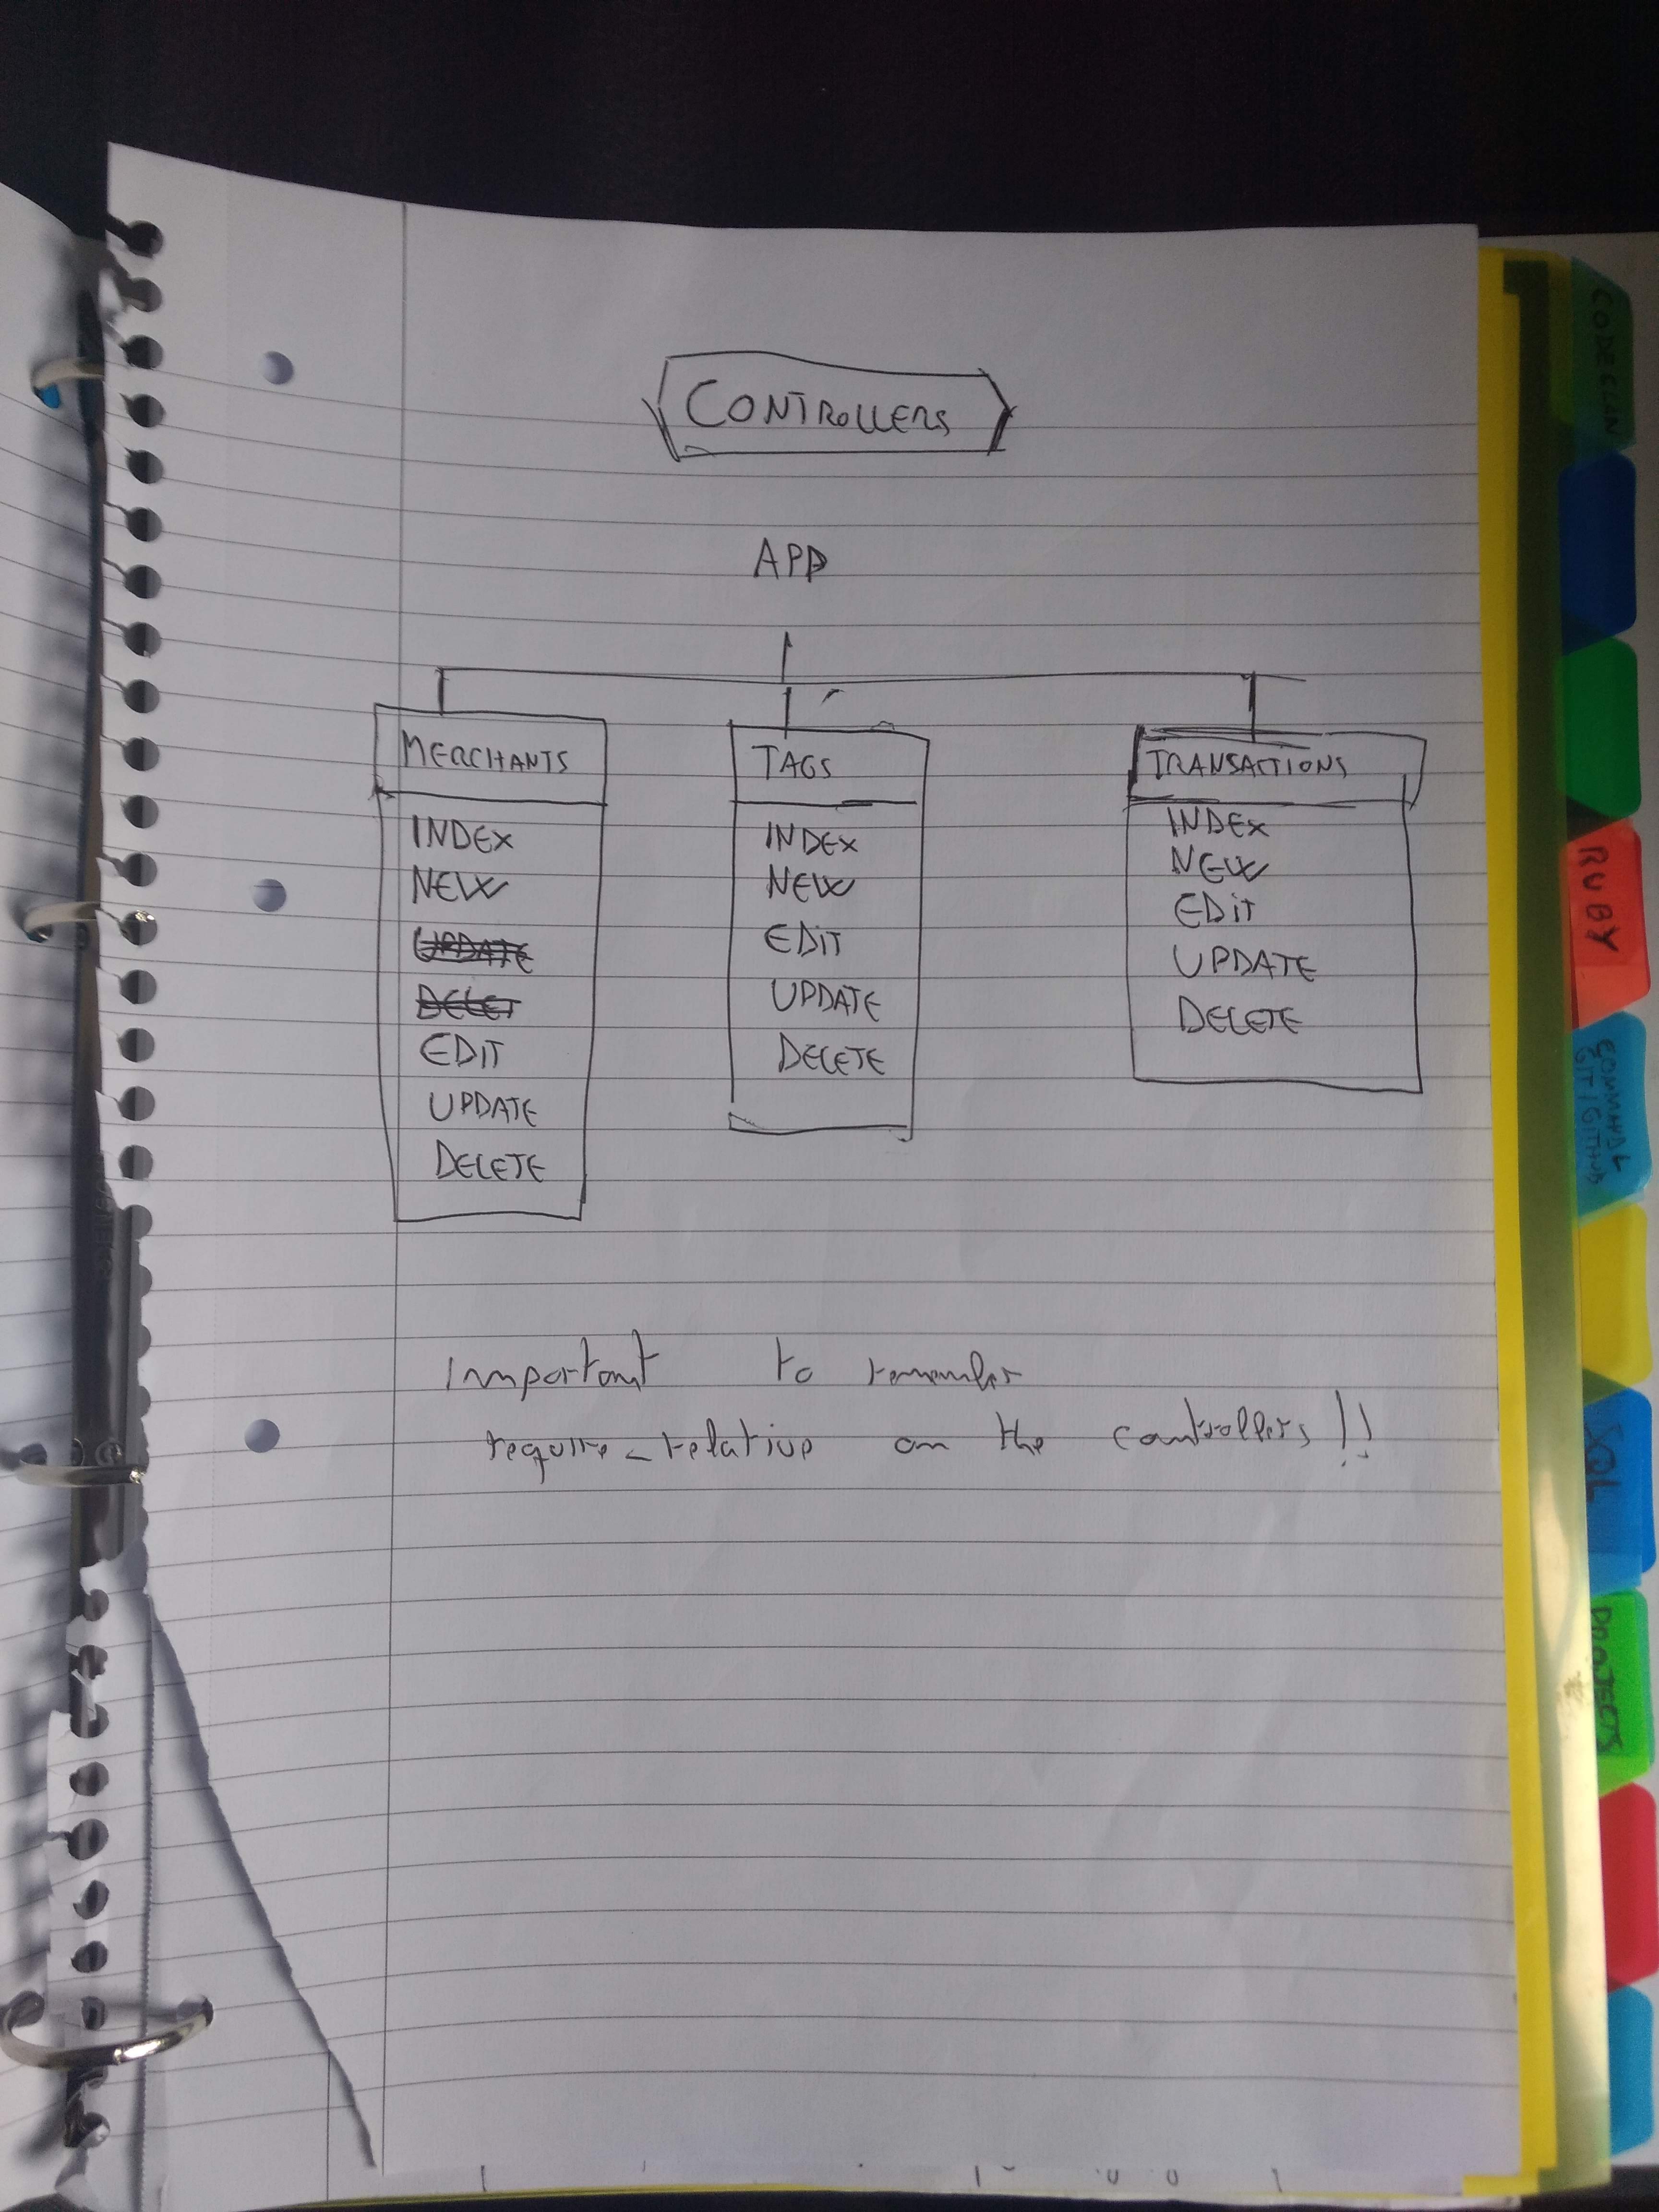 CONTROLLERS
APP
MERCHANTS
INDEX
NEW
UPDATE
DELET
EDIT
UPDATE
DELETE
TAGS
INDEX
NEW
EDIT
UPDATE
DELETE
TRANSACTIONS
INDEX
NEW
EDIT
UPDATE
DELETE
Important to remember
require_relative on the controllers!!
CODECLAN
RUBY
COMMAND L
GIT / GITHUB
SQL
PROJECTS